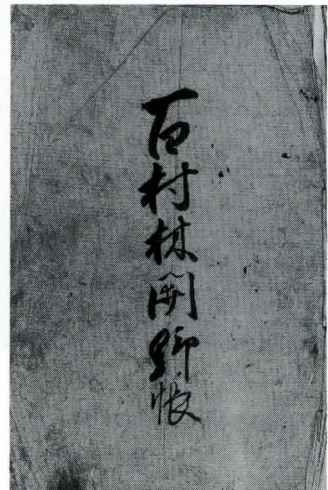 百村林開野帳